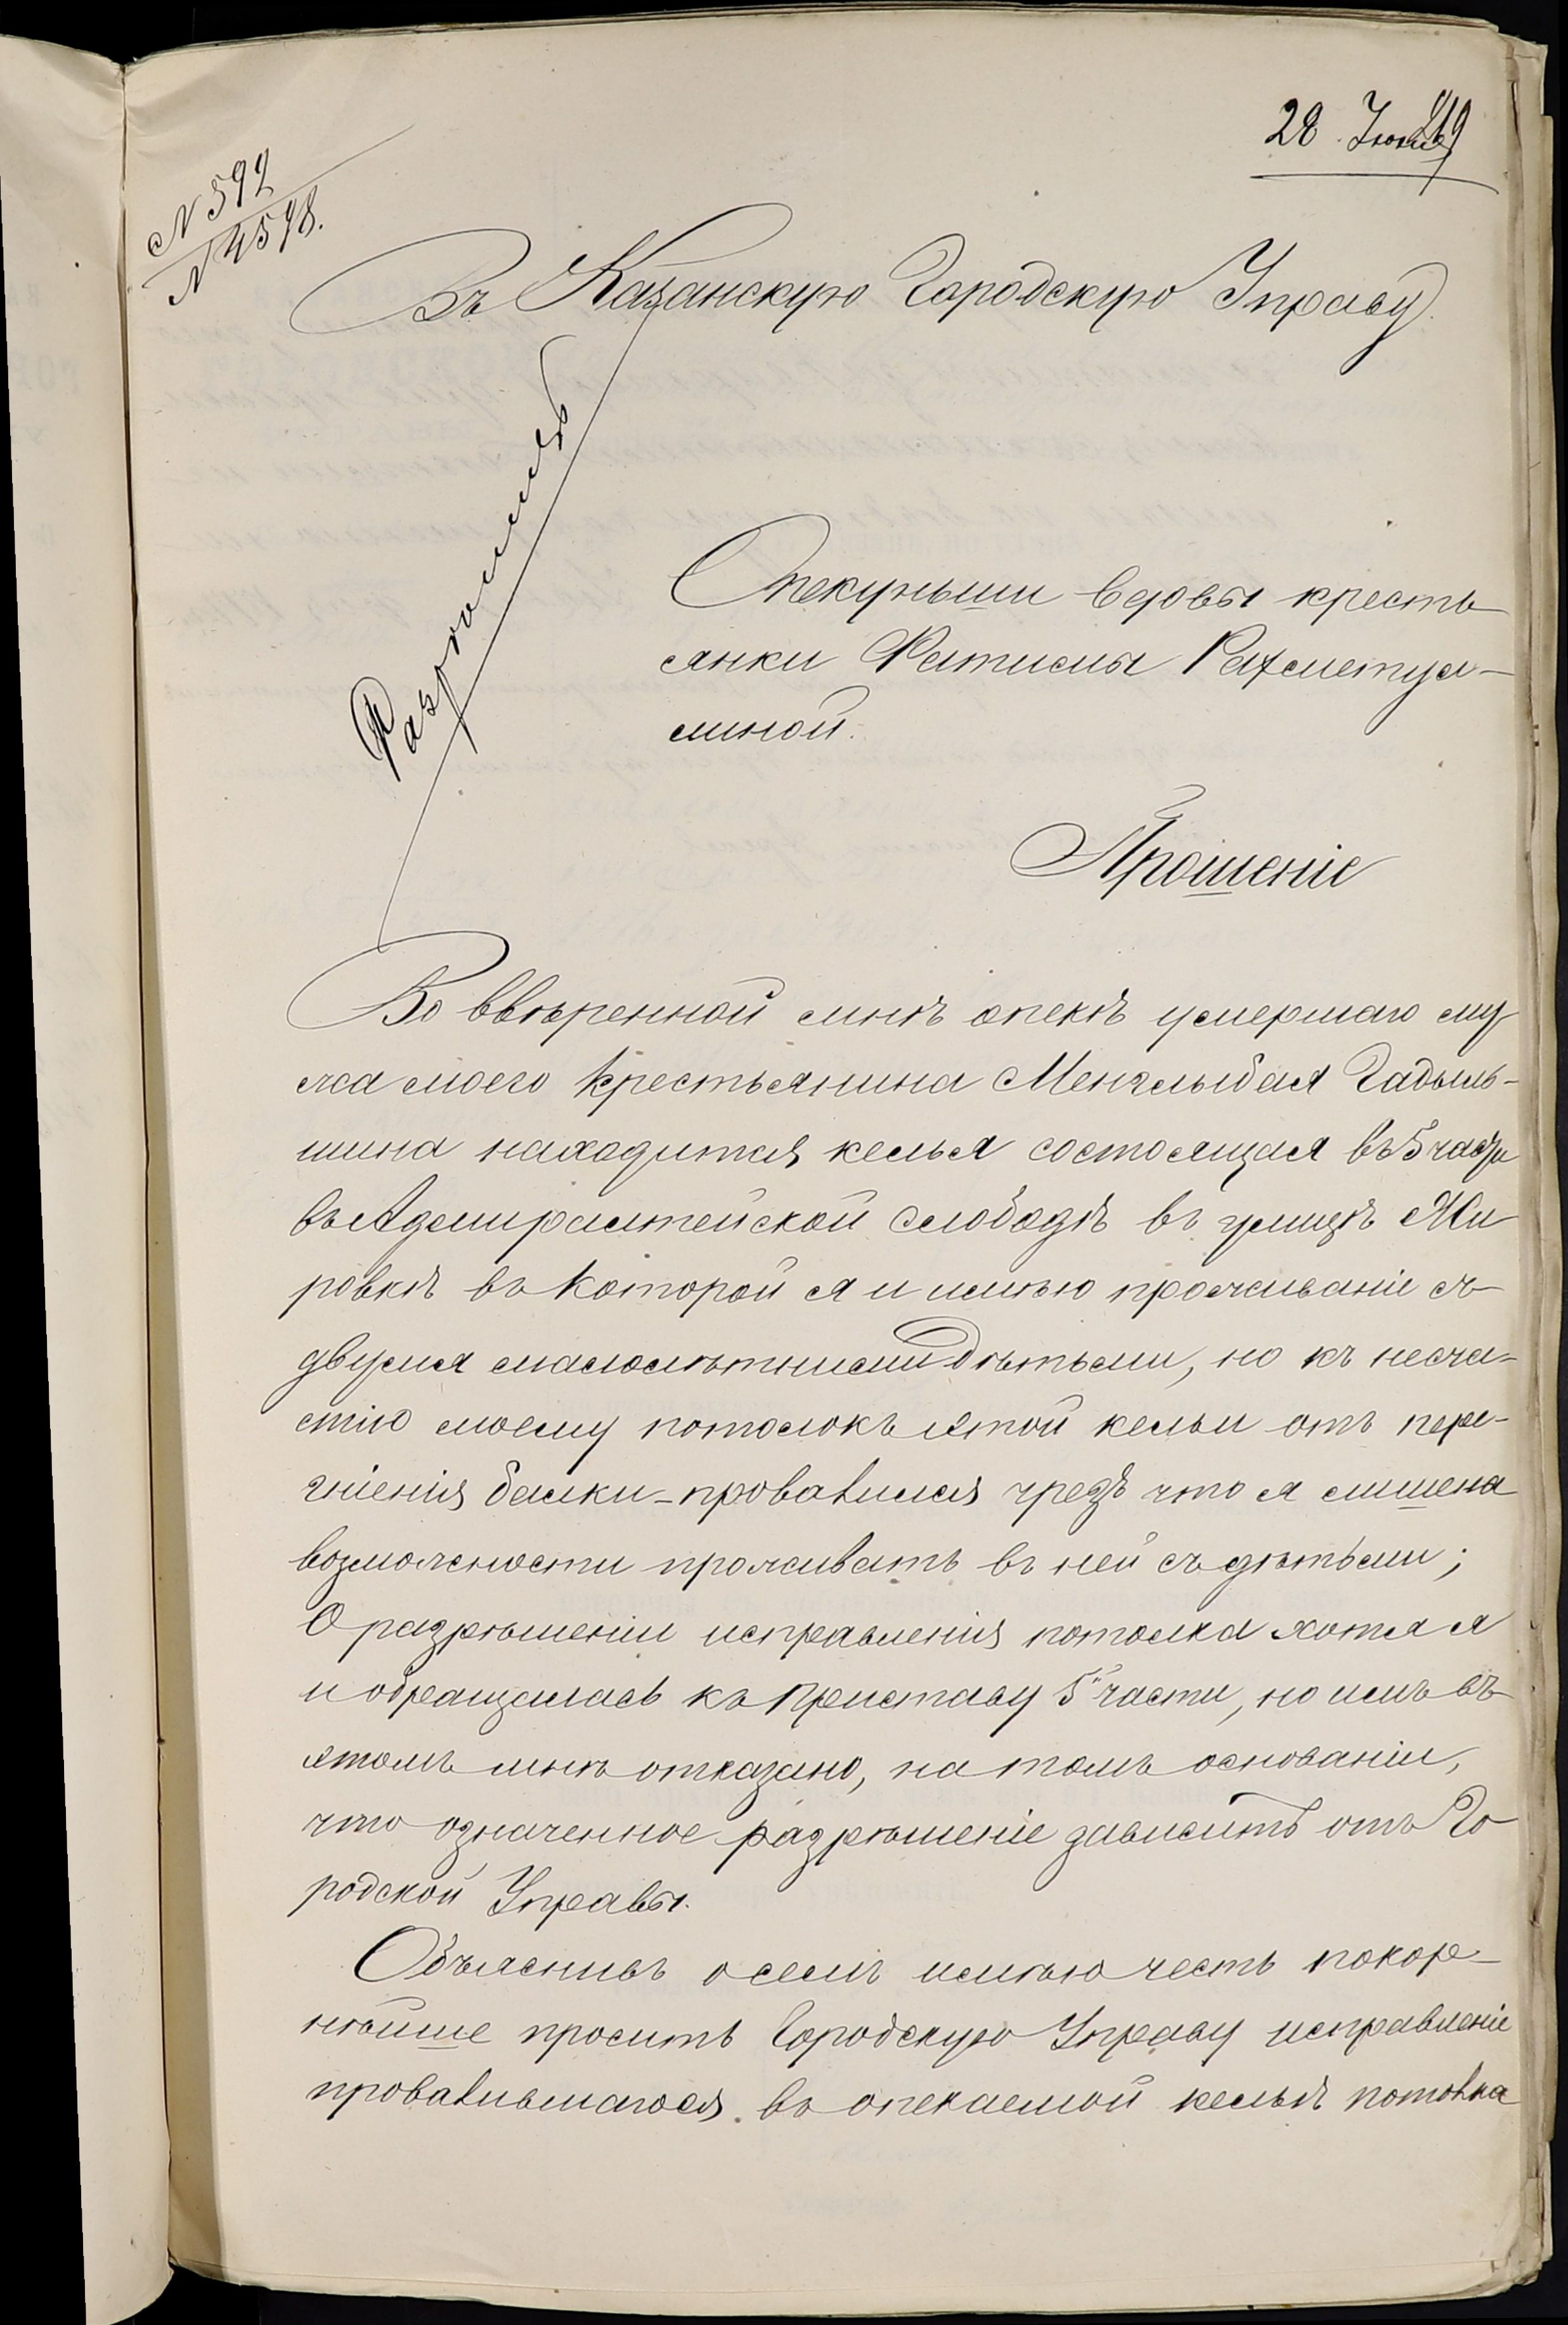 28 Июня
N 592
N 4598.
Въ Казанскую Городскую Управу.
Разрѣшить
Опекунши вдовы кресть
янки Фатимы Рахметул-
линой.
Прошеніе
Во ввѣренной мнѣ опекѣ умершаго му
жа моего крестьянина Менглыбая Гадыль-
шина находится келья состоящая въ 5 части
въ Адмиралтейской слободѣ въ улицѣ Жи
ровкѣ въ которой я и имѣю проживаніе съ
двумя малолѣтними дѣтьми, но къ несча-
стію моему потолокъ этой кельи отъ пере-
гніенія балки - провалился чрезъ что я лишена
возможности проживать въ ней съ дѣтьми;
О разрѣшеніи исправленія потолка хотя я
и обращалась къ Приставу 5й части, но имъ въ
этомъ мнѣ отказано, на томъ основаніи,
что означенное разрѣшеніе зависитъ отъ Го
родской Управы.
Объяснивъ о семъ имѣю честь покор-
нѣйше просить Городскую Управу исправленіе
провалившагося въ опекаемой кельѣ потолка